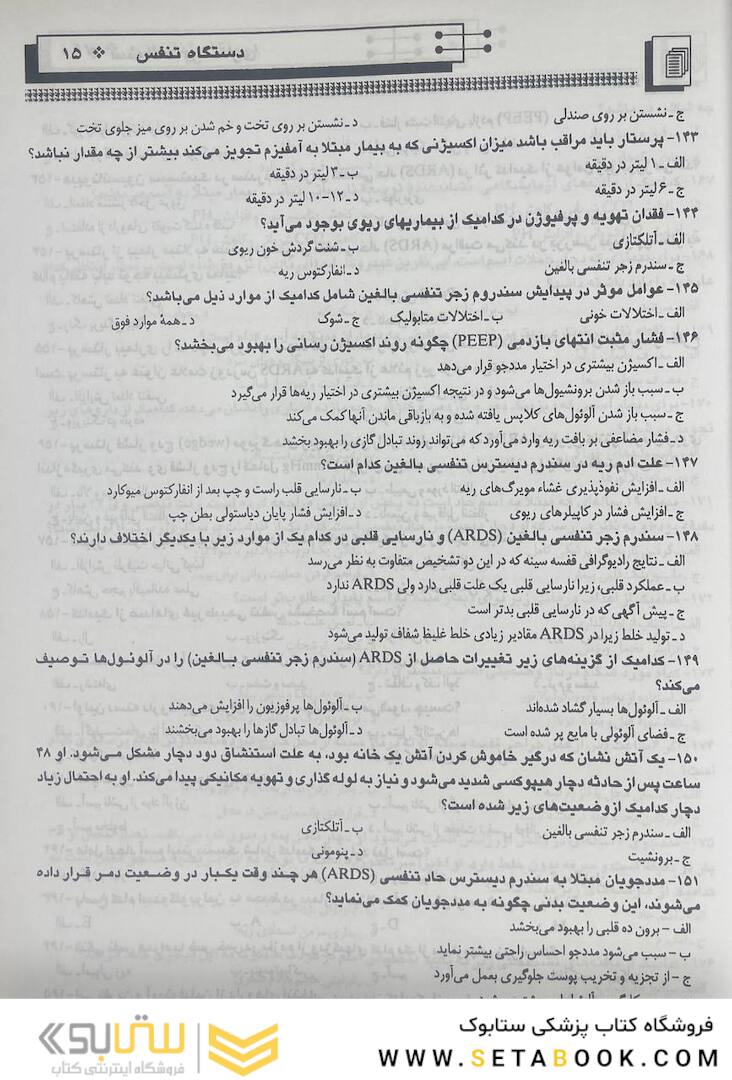 دستگاه تنفس ❖ ۱۵
ج ـ نشستن بر روی صندلی
د ـ نشستن بر روی تخت و خم شدن بر روی میز جلوی تخت
۱۴۳- پرستار باید مراقب باشد میزان اکسیژنی که به بیمار مبتلا به آمفیزم تجویز می‌کند بیشتر از چه مقدار نباشد؟
الف ـ ۱ لیتر در دقیقه
ب ـ ۳ لیتر در دقیقه
ج ـ ۶ لیتر در دقیقه
د ـ ۱۲-۱۰ لیتر در دقیقه
۱۴۴- فقدان تهویه و پرفیوژن در کدامیک از بیماریهای ریوی بوجود می‌آید؟
الف ـ آتلکتازی
ب ـ شنت گردش خون ریوی
ج ـ سندرم زجر تنفسی بالغین
د ـ انفارکتوس ریه
۱۴۵- عوامل موثر در پیدایش سندروم زجر تنفسی بالغین شامل کدامیک از موارد ذیل می‌باشد؟
الف ـ اختلالات خونی
ب ـ اختلالات متابولیک
ج ـ شوک
د ـ همهٔ موارد فوق
۱۴۶- فشار مثبت انتهای بازدمی (PEEP) چگونه روند اکسیژن رسانی را بهبود می‌بخشد؟
الف ـ اکسیژن بیشتری در اختیار مددجو قرار می‌دهد
ب ـ سبب باز شدن برونشیول‌ها می‌شود و در نتیجه اکسیژن بیشتری در اختیار ریه‌ها قرار می‌گیرد
ج ـ سبب باز شدن آلوئول‌های کلاپس یافته شده و به بازباقی ماندن آنها کمک می‌کند
د ـ فشار مضاعفی بر بافت ریه وارد می‌آورد که می‌تواند روند تبادل گازی را بهبود بخشد
۱۴۷- علت ادم ریه در سندرم دیسترس تنفسی بالغین کدام است؟
الف ـ افزایش نفوذپذیری غشاء مویرگ‌های ریه
ب ـ نارسایی قلب راست و چپ بعد از انفارکتوس میوکارد
ج ـ افزایش فشار در کاپیلرهای ریوی
د ـ افزایش فشار پایان دیاستولی بطن چپ
۱۴۸- سندرم زجر تنفسی بالغین (ARDS) و نارسایی قلبی در کدام یک از موارد زیر با یکدیگر اختلاف دارند؟
الف ـ نتایج رادیوگرافی قفسه سینه که در این دو تشخیص متفاوت به نظر می‌رسد
ب ـ عملکرد قلبی، زیرا نارسایی قلبی یک علت قلبی دارد ولی ARDS ندارد
ج ـ پیش آگهی که در نارسایی قلبی بدتر است
د ـ تولید خلط زیرا در ARDS مقادیر زیادی خلط غلیظ شفاف تولید می‌شود
۱۴۹- کدامیک از گزینه‌های زیر تغییرات حاصل از ARDS (سندرم زجر تنفسی بـالغین) را در آلونـول‌ها تـوصیف
می‌کند؟
الف ـ آلوئول‌ها بسیار گشاد شده‌اند
ب ـ آلوئول‌ها پرفوزیون را افزایش می‌دهند
ج ـ فضای آلوئولی با مایع پر شده است
د ـ آلوئول‌ها تبادل گازها را بهبود می‌بخشند
۱۵۰- یک آتش نشان که درگیر خاموش کردن آتش یک خانه بود، به علت استنشاق دود دچار مشکل مـی‌شود. او ۴۸
ساعت پس از حادثه دچار هیپوکسی شدید می‌شود و نیاز به لوله گذاری و تهویه مکانیکی پیدا می‌کند. او به احتمال زیاد
دچار کدامیک از وضعیت‌های زیر شده است؟
الف ـ سندرم زجر تنفسی بالغین
ب ـ آتلکتازی
ج ـ برونشیت
د ـ پنومونی
۱۵۱- مددجویان مبتلا به سندرم دیسترس حاد تنفسی (ARDS) هر چند وقت یکبار در وضعیت دمـر قـرار داده
می‌شوند، این وضعیت بدنی چگونه به مددجویان کمک می‌نماید؟
الف - برون ده قلبی را بهبود می‌بخشد
ب - سبب می‌شود مددجو احساس راحتی بیشتر نماید
ج - از تجزیه و تخریب پوست جلوگیری بعمل می‌آورد
فروشگاه کتاب پزشکی ستابوک
WWW.SETABOOK.COM
ستابوک
فروشگاه اینترنتی کتاب